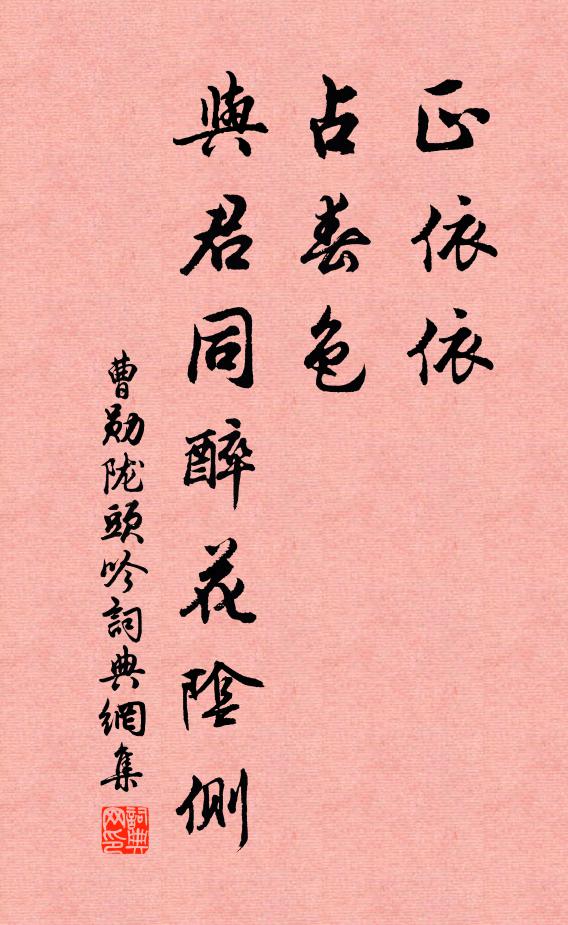 正依依
占春色
與君同醉花陰侧
曹勋陇頭吟詞典網集
詞典网印